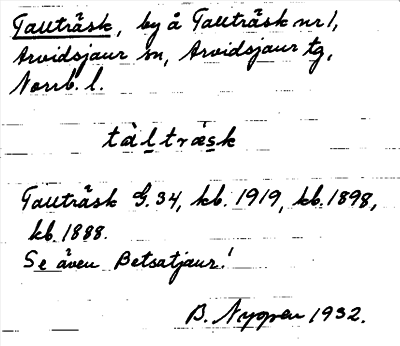 Tallträsk, by å Tallträsk nr 1,
Arvidsjaur sn, Arvidsjaur tg,
Norrb. l.
tàl̲träs̲k
Tallträsk G. 34, kb. 1919, kb. 1898,
kb. 1888.
Se även Betsatjaur!
B. Nygren 1932.